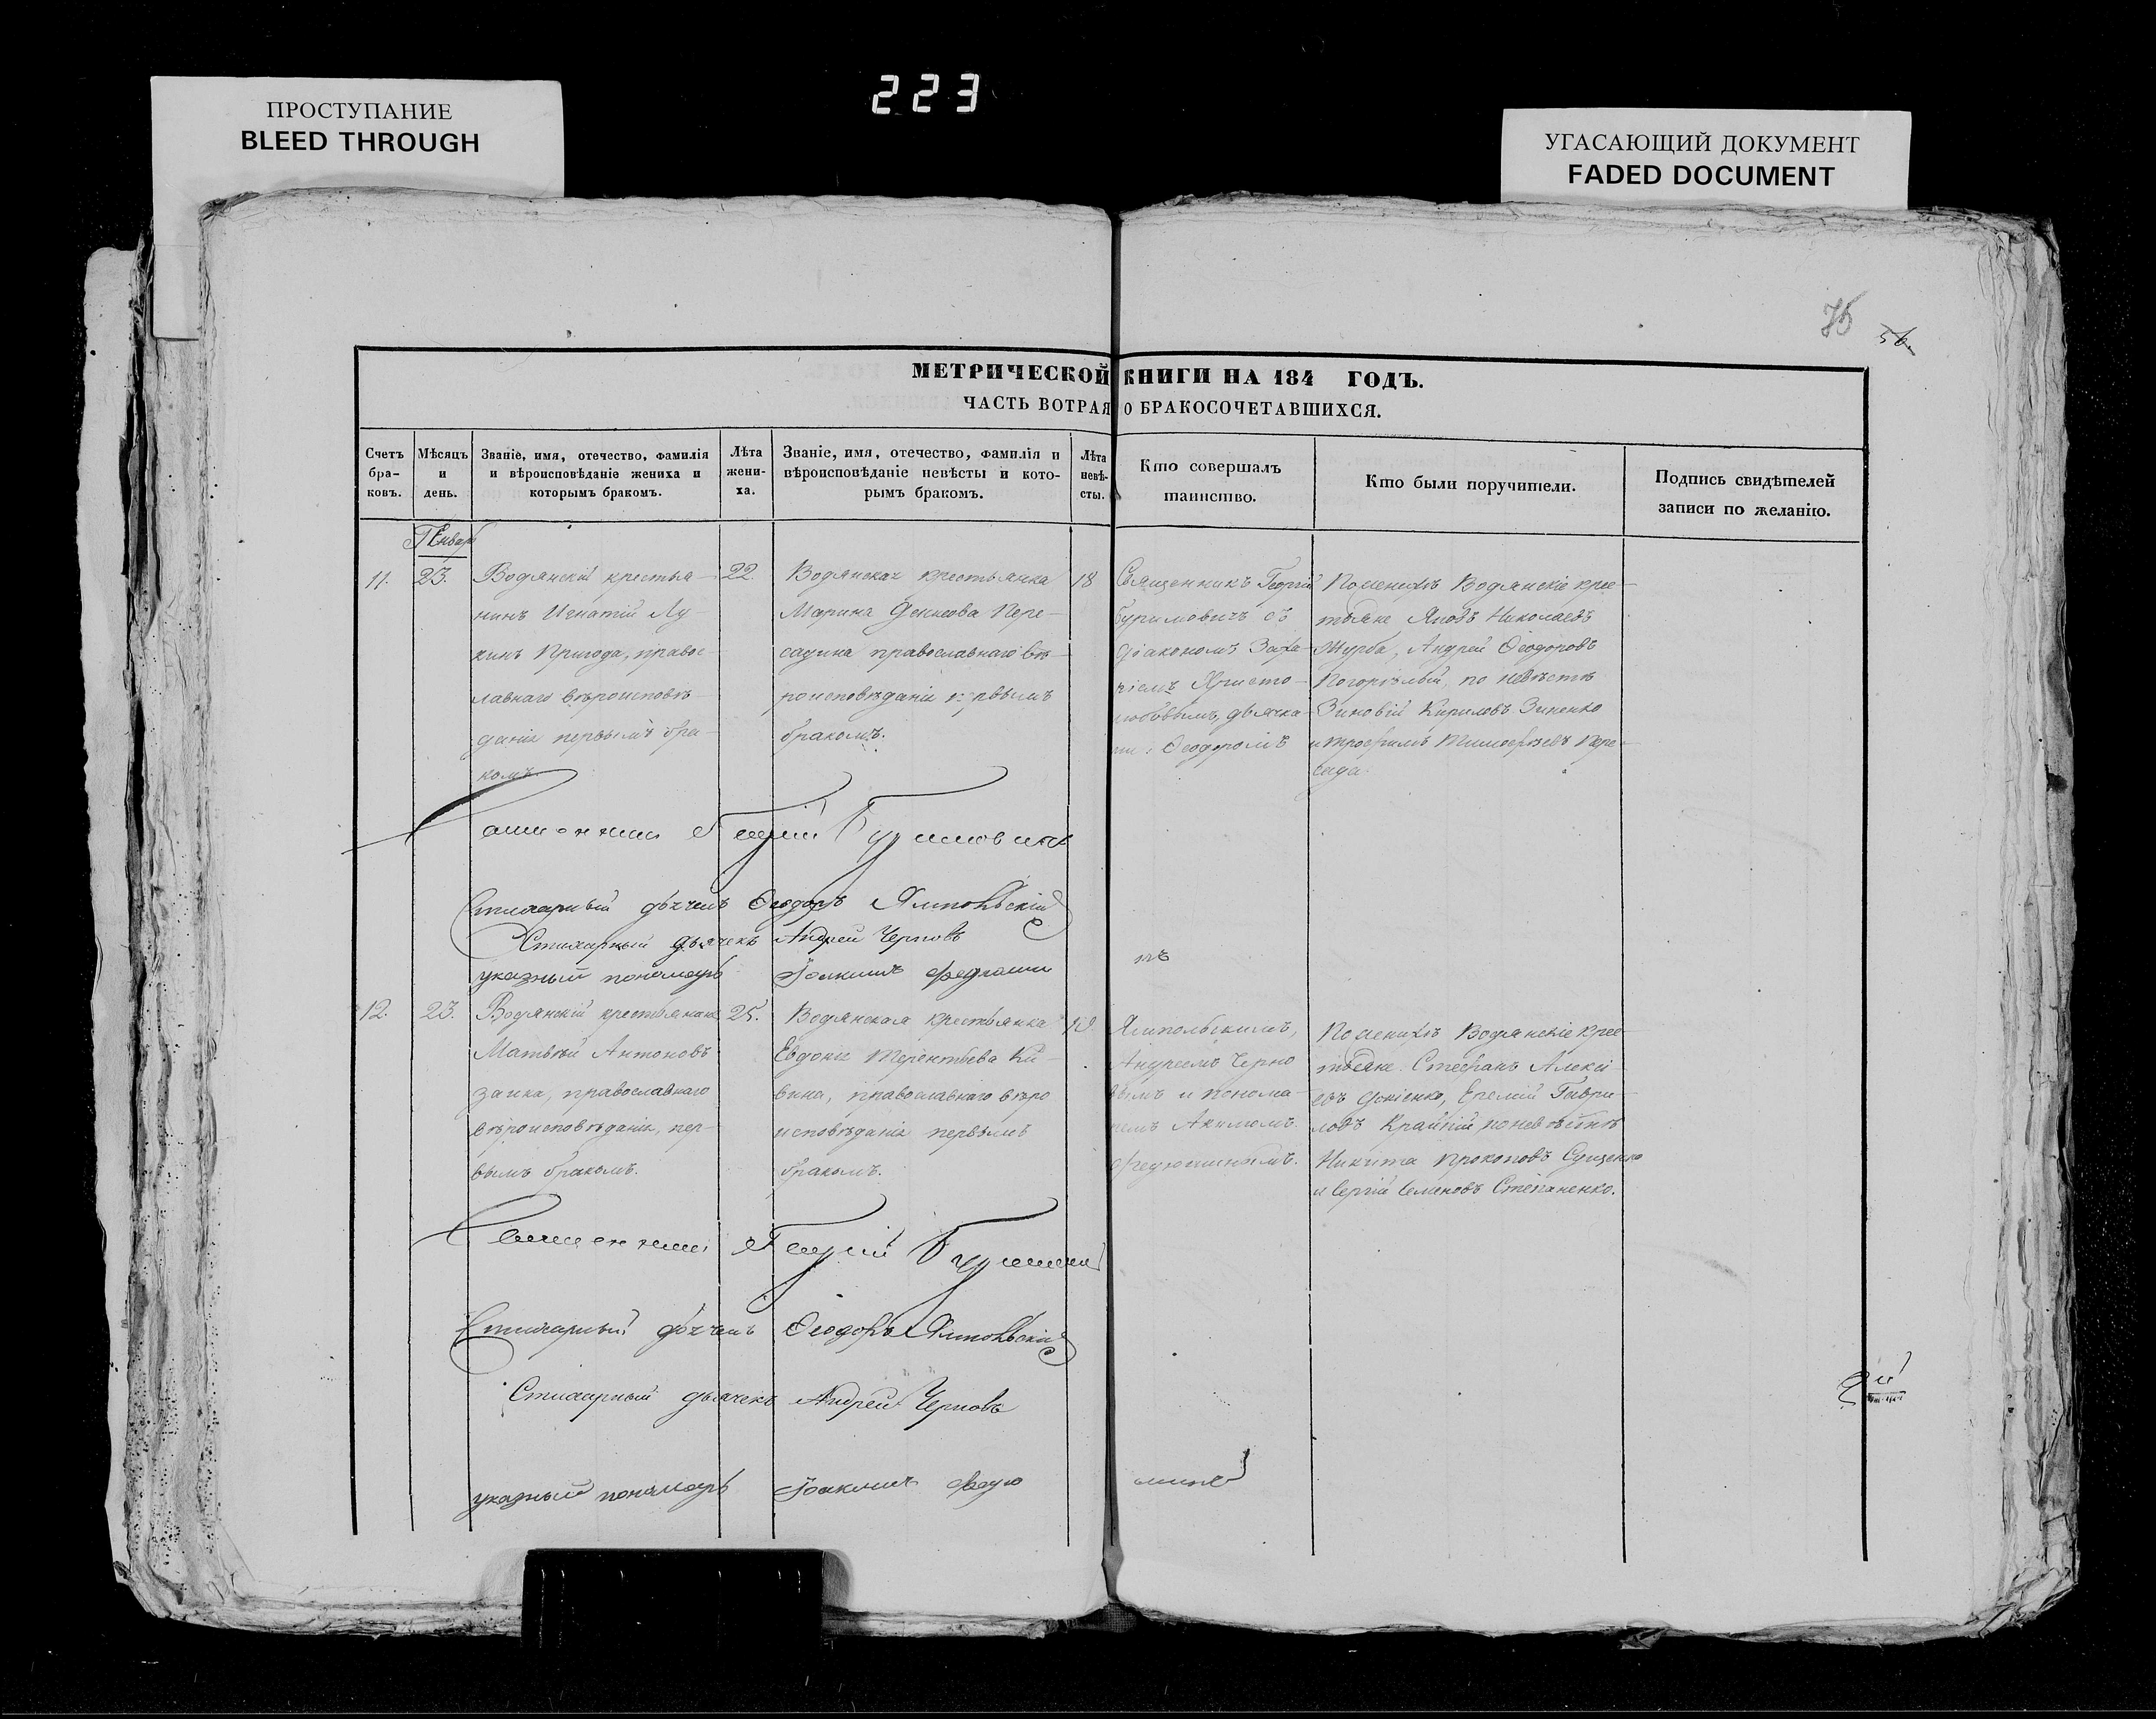 223
ПРОСТУПАНИЕ
BLEED THROUGH
УГАСАЮЩИЙ ДОКУМЕНТ
FADED DOCUMENT
75
56.
МЕТРИЧЕСКОЙ КНИГИ НА 184 ГОДЪ.
ЧАСТЬ ВОТРАЯ О БРАКОСОЧЕТАВШИХСЯ.
Счетъ
бра-
ковъ.
Мѣсяцъ
и
день.
Званіе, имя, отечество, фамилія
и вѣроисповѣданіе жениха и
которымъ бракомъ.
Лѣта
жени-
ха.
Званіе, имя, отечество, фамилія и
вѣроисповѣданіе невѣсты и кото-
рымъ бракомъ.
Лѣта
невѣ-
сты.
Кто совершалъ
таинство.
Кто были поручители.
Подпись свидѣтелей
записи по желанію.
11.
23.
Водянскій крестья-
нинъ Игнатій Лу-
кинъ Пригода, правос-
лавнаго вѣроисповѣ-
данія первымъ бра-
комъ.
22.
Водянская крестьянка
Марина Денисова Пере-
садина православнаго вѣ-
роисповѣданія первымъ
бракомъ.
18
Священникъ Георгій
Буримовичъ съ
діакономъ Заха-
ріемъ Христо-
любовымъ, дьячка-
ми: Ѳеодоромъ
По женихѣ Водянскіе крес-
тьяне Яковъ Николаевъ
Журба, Андрей Ѳеодоровъ
Погорѣлый, по невѣстѣ
Зиновій Кириловъ Зиненко
и Трофимъ Тимофѣевъ Пере-
сада.
Священникъ Георгій Буримовичъ
Стихарный дьячекъ Ѳеодоръ Ямпольскій
Стихарный дьячекъ Андрей Черновъ
указный пономарь Іоакимъ
12.
23.
Водянскій крестьянинъ
Матвѣй Антоновъ
Заика, православнаго
вѣроисповѣданія, пер-
вымъ бракомъ.
25.
Водянская крестьянка
Евдокія Терентьева
православнаго вѣро
исповѣданія первымъ
бракомъ.
Ямпольскимъ,
Андреемъ Черно
вымъ и понома-
ремъ Акимомъ
Федюшинымъ.
По женихѣ Водянскіе крес-
тьяне Стефанъ Алексі
евъ Еремій Гаври-
ловъ Крайній, по невѣстѣ
Никита Прокоповъ Сущенко
и Сергій Семеновъ Степаненко.
Священникъ Георгій
Стихарный дьячекъ Ѳеодоръ Ямпольскій
Стихарный дьячекъ Андрей Черновъ
указный пономарь Іоакимъ Федю шинъ